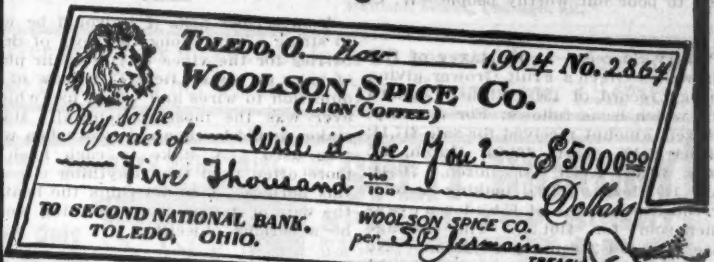 TOLEDO, O. Nov 1904 No. 2864
WOOLSON SPICE CO.
(LION COFFEE)
Pay to the
order of — Will it be You? — $5000 00
— Five Thousand no/100 — Dollars
TO SECOND NATIONAL BANK.
TOLEDO, OHIO.
WOOLSON SPICE CO.
per S P Jermain